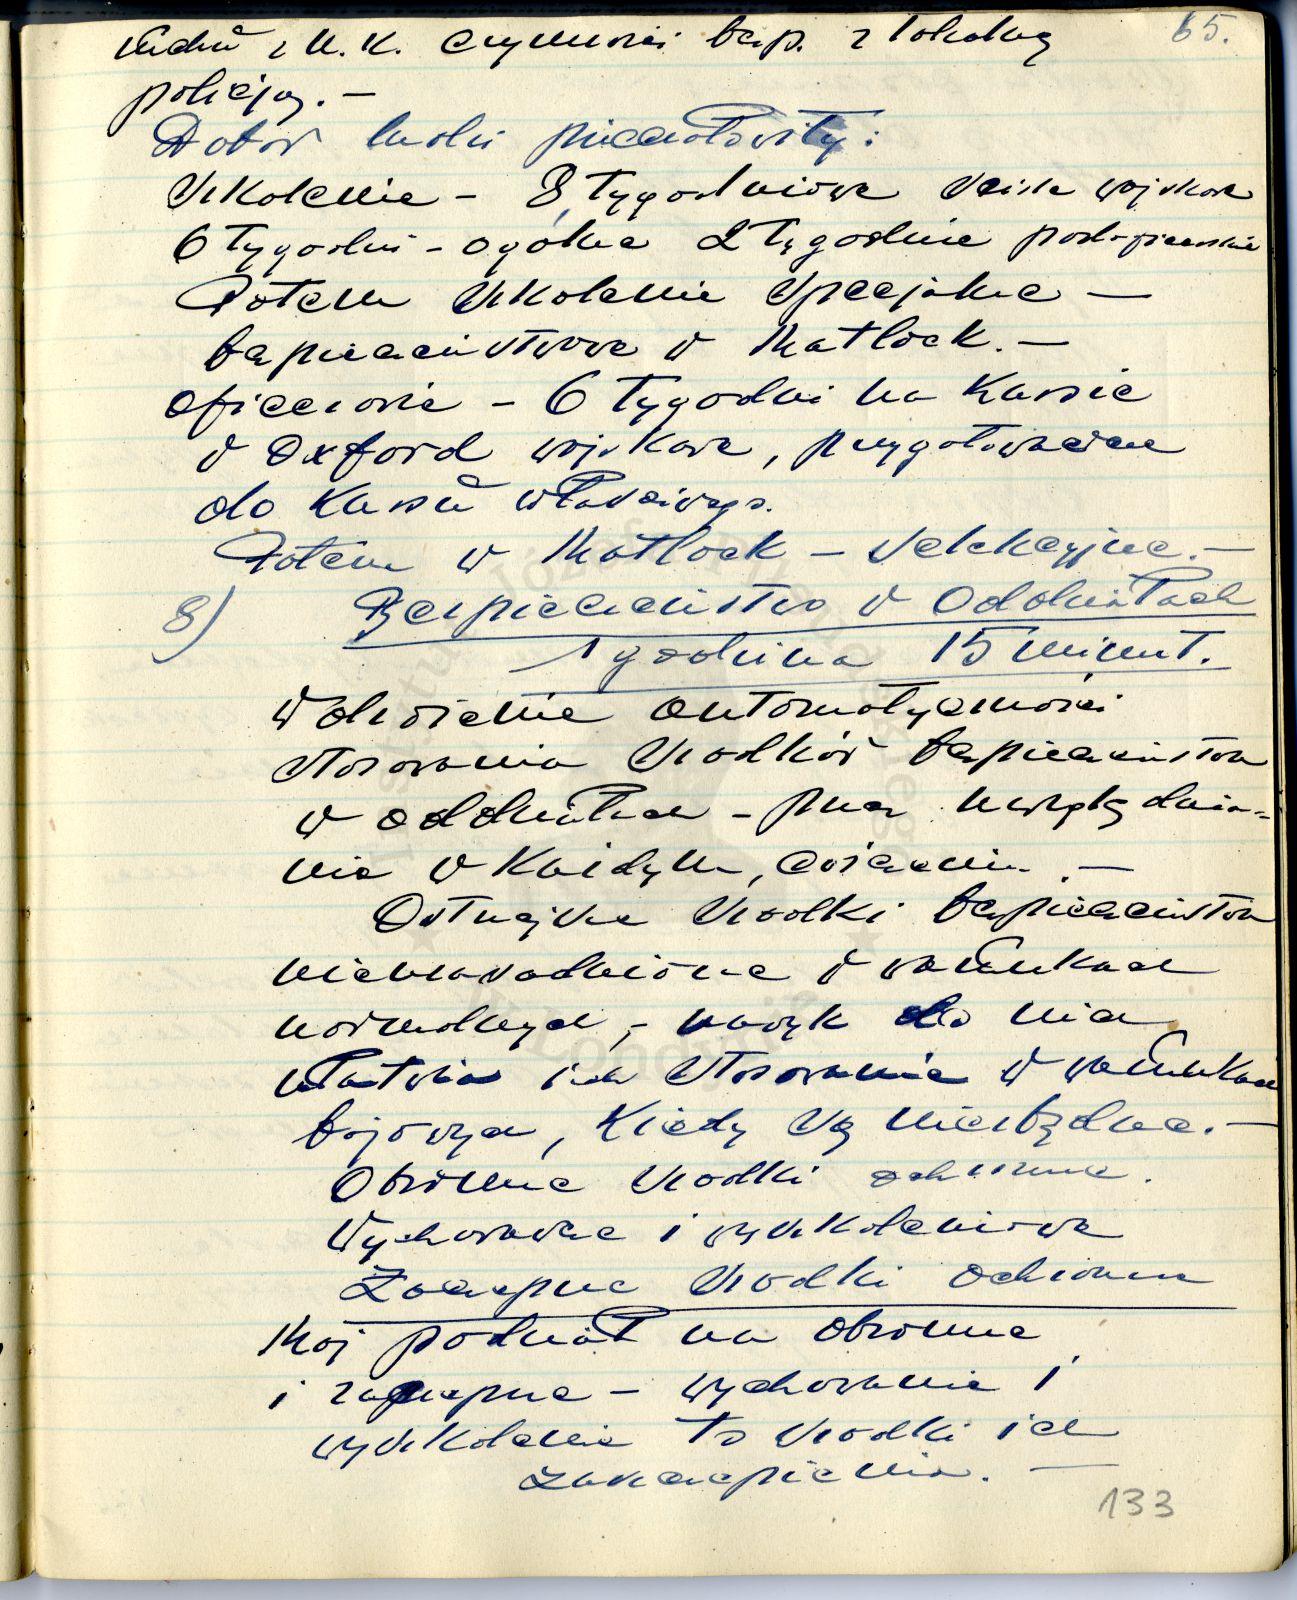 65.
ruchu z U.K. czynności bezp. z lokalną
policją. —
Dobór ludzi pieczołowity:
Szkolenie – 8 tygodniowe ściśle wojskowe
6 tygodni – ogólne 2 tygodnie podoficerskie
Potem szkolenie specjalne —
bezpieczeństwowe w Matlock. —
oficerowie – 6 tygodni na kursie
w Oxford wojskowe, przygotowawcze
do kursu właściwego.
Potem w Matlock – selekcyjne. —
8) Bezpieczeństwo w Oddziałach
1 godzina 15 minut.
Wdrożenie automatyczności
stosowania środków bezpieczeństwa
w oddziałach – przez uwzględnia-
nie w każdym ćwiczeniu. —
Ostrzejsze środki bezpieczeństwa
nieuzasadnione w warunkach
normalnych, – nawyk do nich
ułatwia ich stosowanie w warunkach
bojowych, kiedy są niezbędne. —
Obronne środki ochronne.
Wychowawcze i wyszkoleniowe
Zaczepne środki ochronne
Mój podział na obronne
i zaczepne – wychowanie i
wyszkolenie to środki ich
zaczepienia. —
133
Instytut Józefa Piłsudskiego
w Londynie